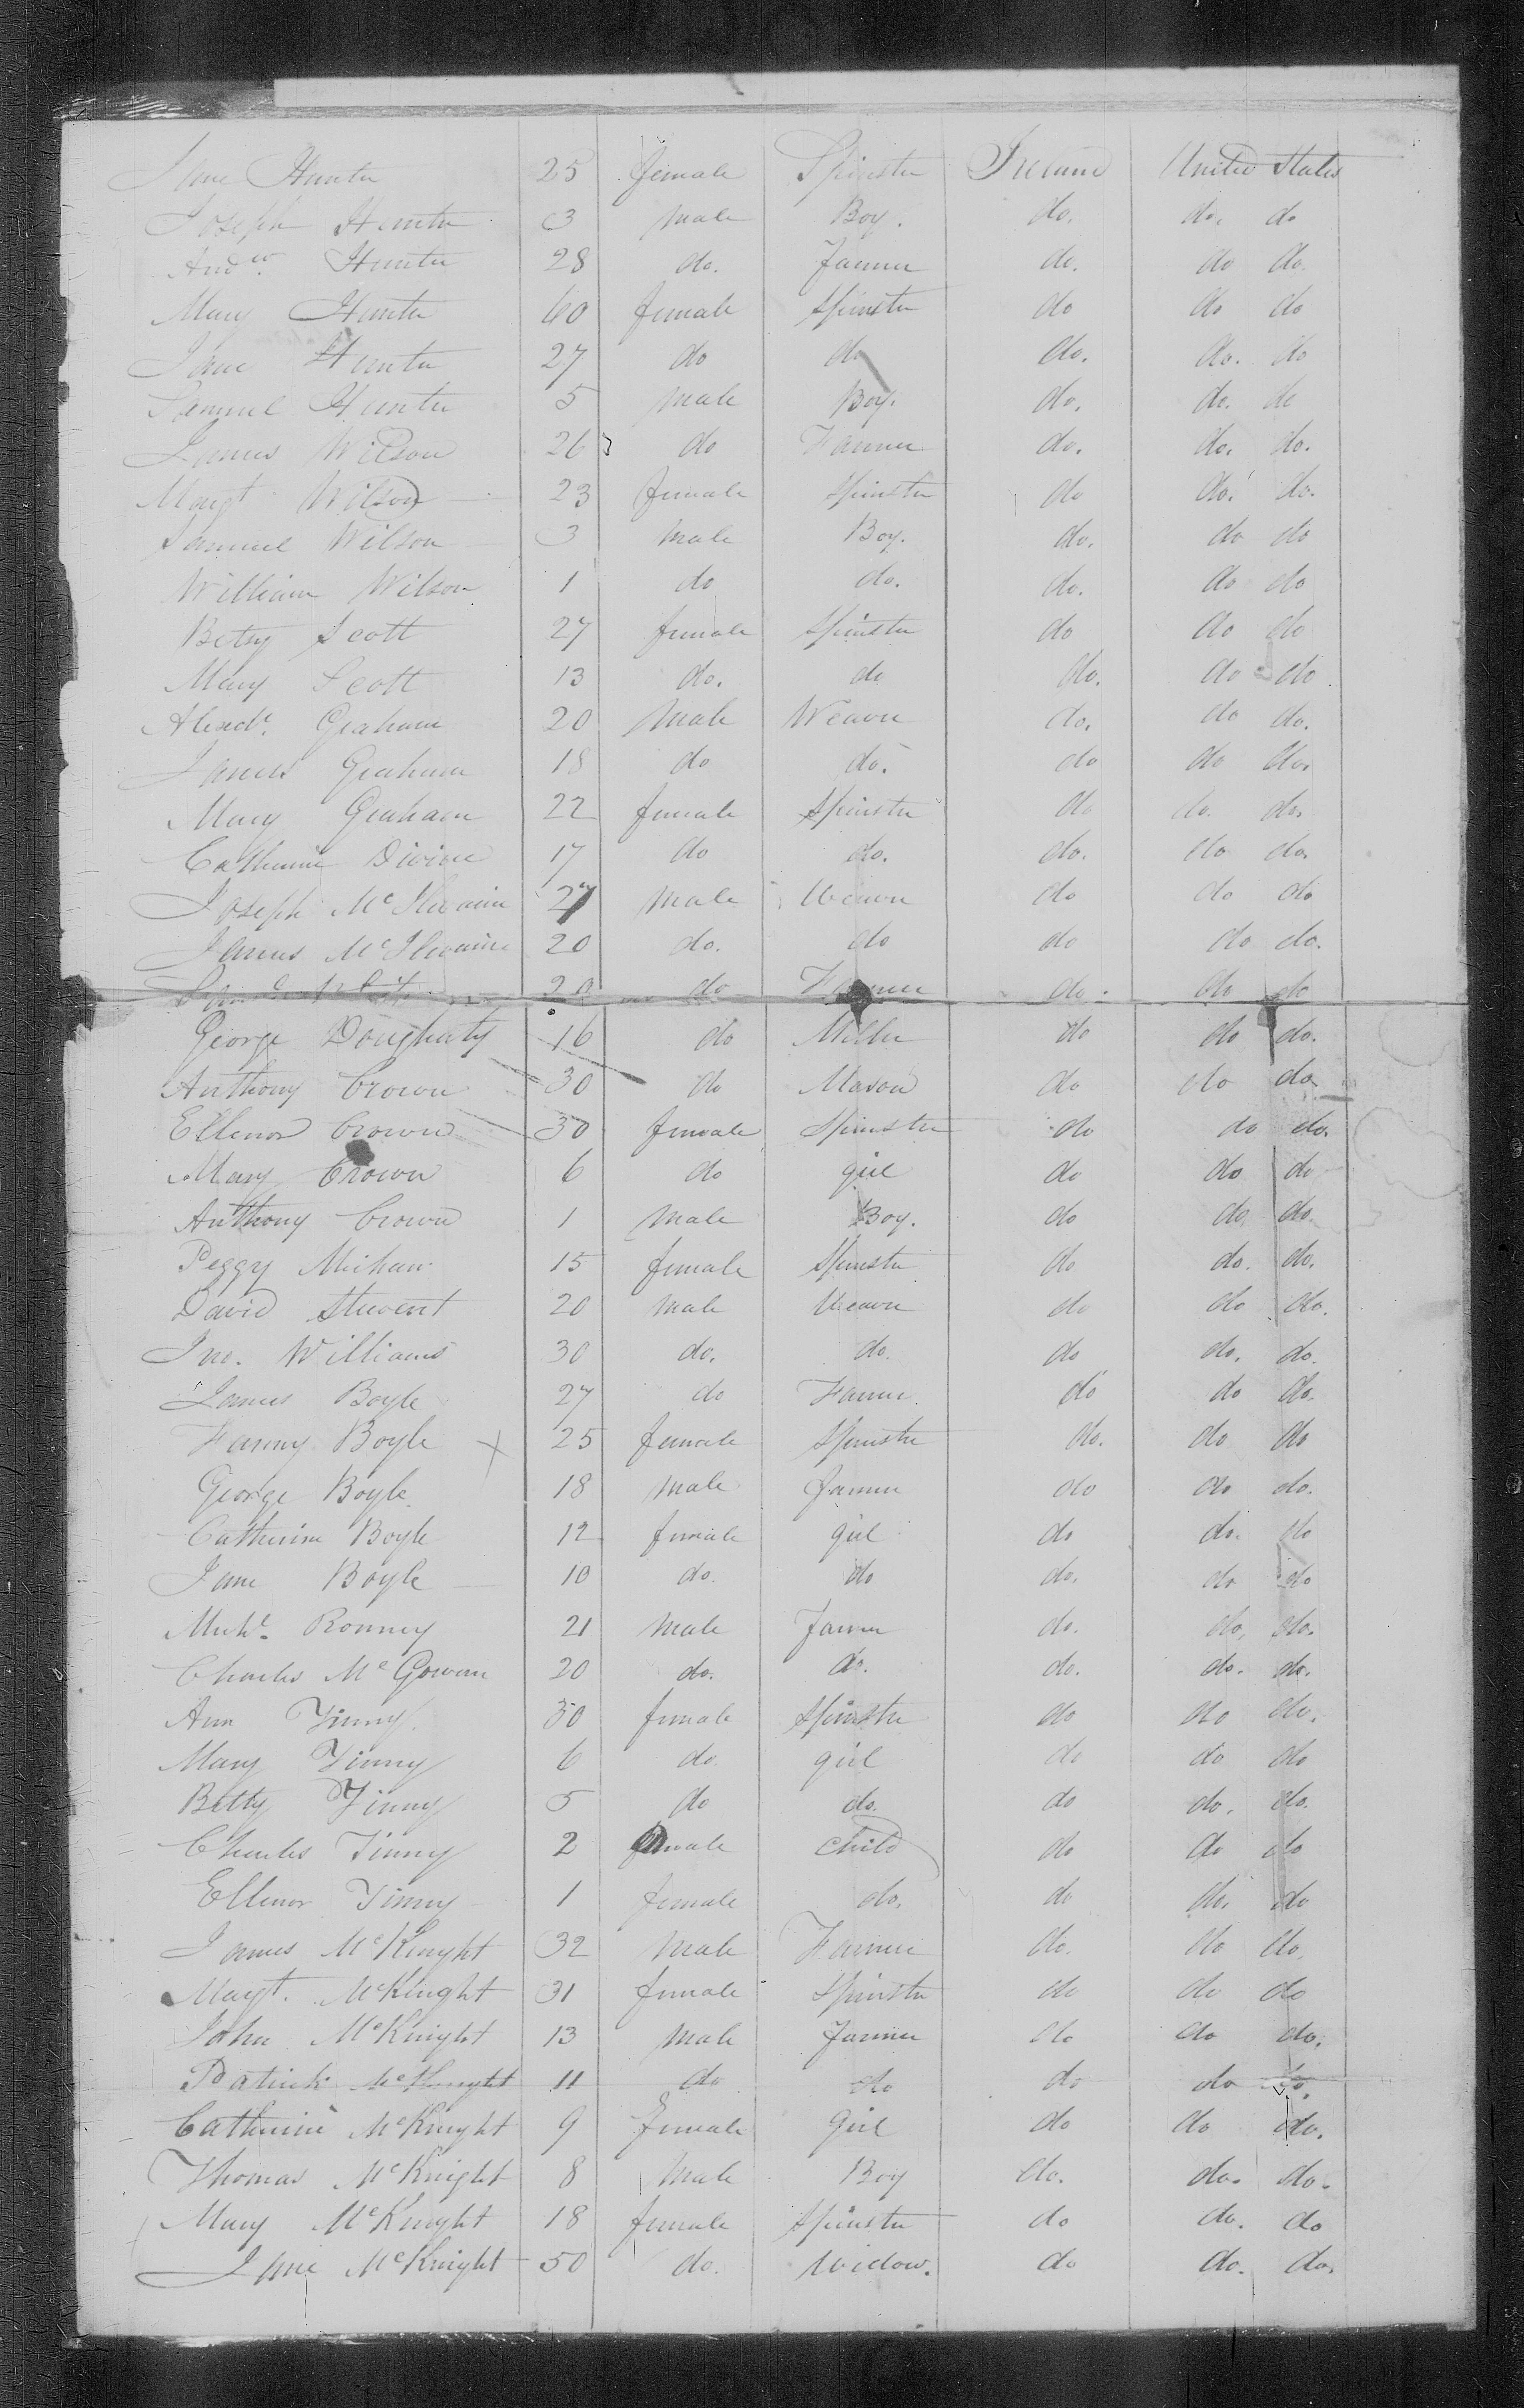 Jane Hunter 25 female Spinster Ireland United States
Joseph Hunter 3 Male Boy. do. do. do
Andw. Hunter 28 do. Farmer do. do do.
Mary Hunter 60 female Spinster do do do
Jane Hunter 27 do do do. do. do
Samuel Hunter 5 Male Boy. do. do. do
James Wilson 26 do Farmer do. do. do.
Margt Wilson 23 female Spinster do do. do.
Samuel Wilson 3 Male Boy. do. do do
William Wilson 1 do do. do. do do
Betsy Scott 27 female Spinster do do do
Mary Scott 13 do. do do. do do
Alexdr. Graham 20 Male Weaver do. do do.
James Graham 18 do do. do do do.
Mary Graham 22 female Spinster do do. do.
Catherine Divine 17 do do. do. do do.
Joseph McIlwaine 27 Male Weaver do do do
James McIlwaine 20 do. do do do do.
20 do Farmer do. do do
George Dougharty 16 do Miller do do do.
Anthony Crown 30 do Mason do do do
Ellenor Crown 30 female Spinster do do do.
Mary Crown 6 do girl do do do
Anthony Crown 1 Male Boy. do do do.
Peggy Michan 15 female Spinster do do. do.
David Stewert 20 Male Weaver do do do.
Jno. Williams 30 do. do. do do. do.
James Boyle 27 do Farmer do do do.
Fanny Boyle X 25 female Spinster do. do do
George Boyle 18 Male Farmer do do do.
Catherine Boyle 12 female girl do do. do
Jane Boyle 10 do. do do. do do
Michl. Ronney 21 Male Farmer do. do. do.
Charles McGowan 20 do. do. do. do. do.
Ann Tinny 30 female Spinster do do do.
Mary Tinny 6 do. girl do do do
Betty Tinny 5 do do. do do. do.
Charles Tinny 2 male Child do do do
Ellenor Tinny 1 female do. do do. do
James McKnight 32 Male Farmer do. do do.
Margt. McKnight 31 female Spinster do do do
John McKnight 13 Male Farmer do do do.
Patrick McKnight 11 do do do do do.
Catherine McKnight 9 female Girl do do do.
Thomas McKnight 8 Male Boy do. do. do.
Mary McKnight 18 female Spinster do do. do
Jane McKnight 50 do. Widow. do do. do.